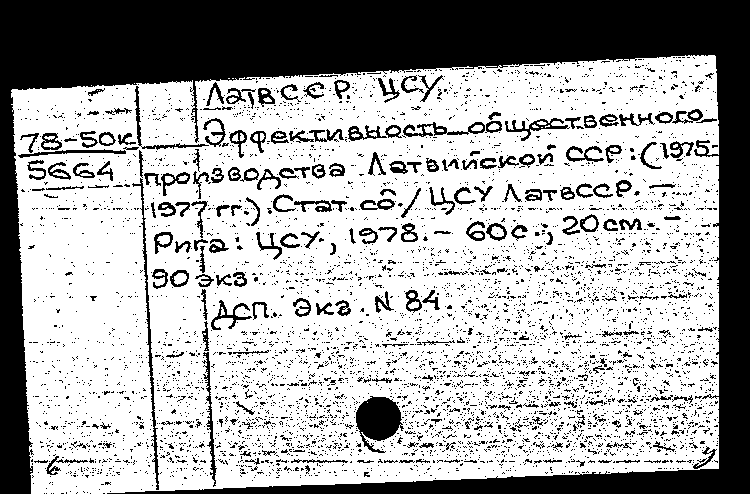 ЛатвССР ЦСУ.
78-50к Эффективность общественного
5664 производства Латвийской ССР: (1975-
1977 гг.). Стат. сб. / ЦСУ ЛатвССР. —
Рига: ЦСУ, 1978. — 60 с.; 20 см. —
90 экз.
ДСП. Экз. N 84.